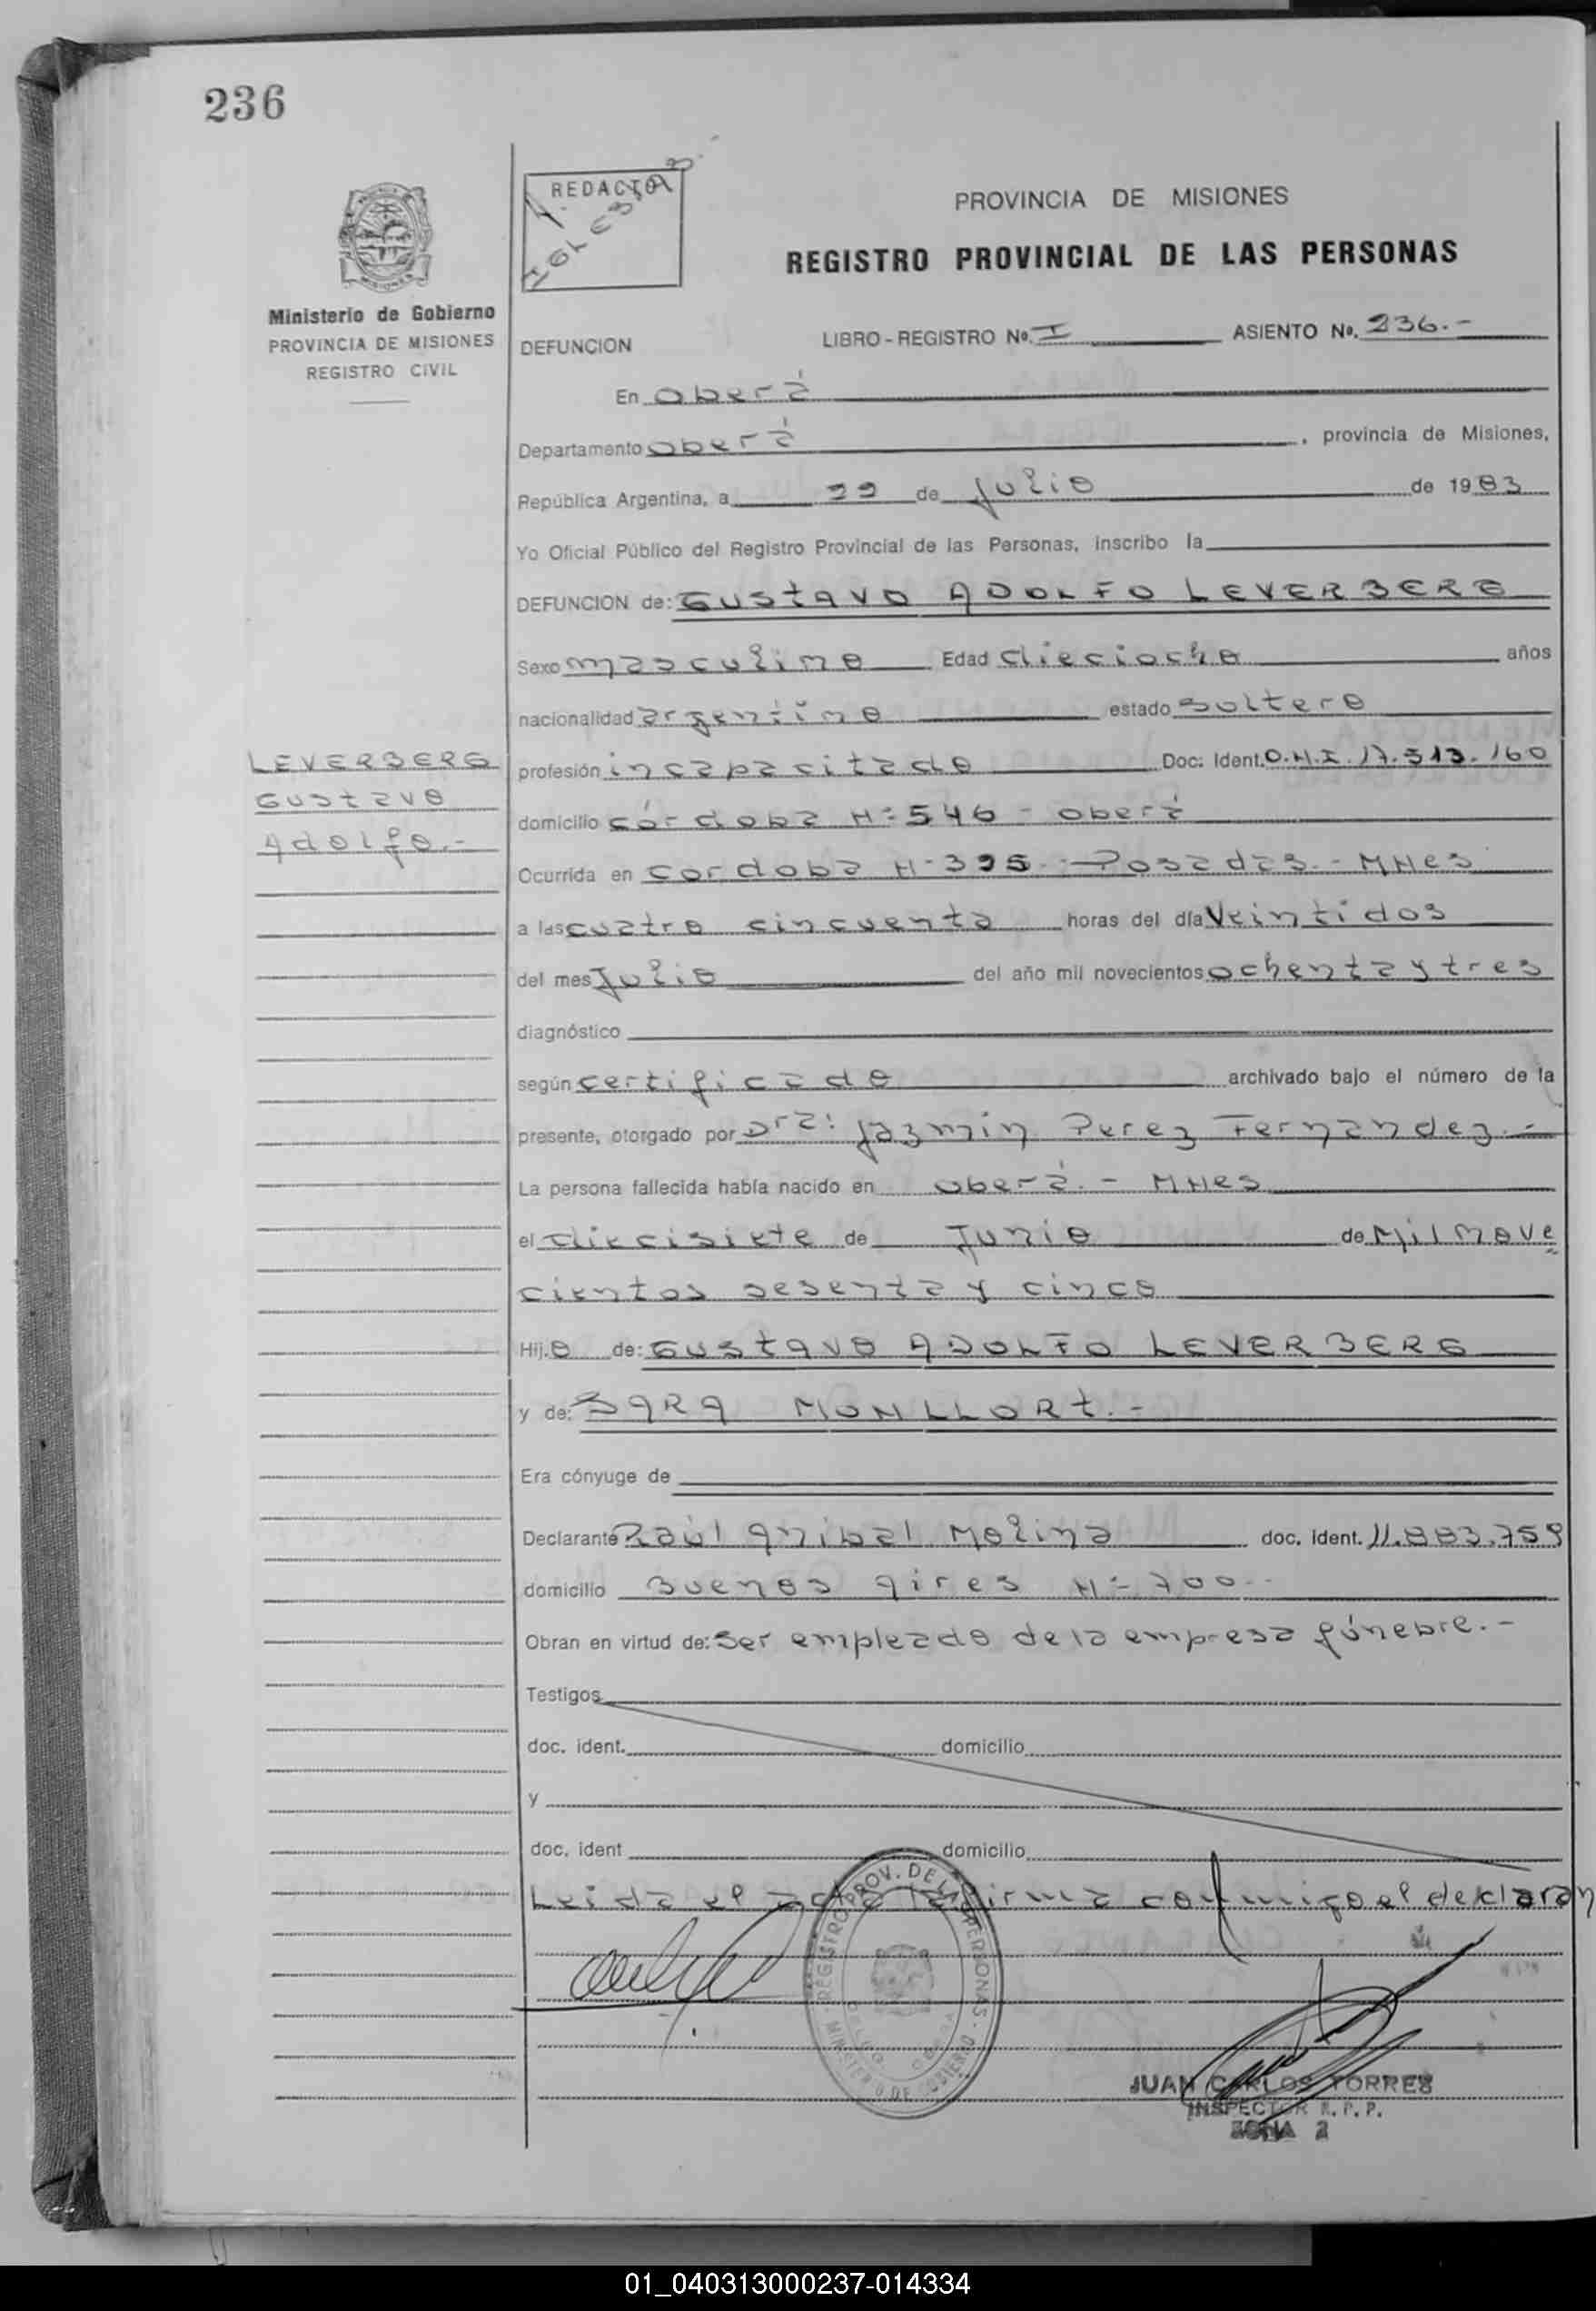 236
REDACTOR
PROVINCIA DE MISIONES
REGISTRO PROVINCIAL DE LAS PERSONAS
Ministerio de Gobierno
PROVINCIA DE MISIONES
REGISTRO CIVIL
DEFUNCION LIBRO-REGISTRO No. I ASIENTO No. 236.-
En Oberá
Departamento Oberá, provincia de Misiones,
República Argentina, a 22 de Julio de 1983
Yo Oficial Público del Registro Provincial de las Personas, inscribo la
DEFUNCION de: GUSTAVO ADOLFO LEVERBERG
Sexo masculino Edad dieciocho años
nacionalidad argentino estado soltero
LEVERBERG
Gustavo
Adolfo.-
profesión incapacitado Doc. Ident. D.N.I. 17.513.160
domicilio córdoba N=546 - Oberá
Ocurrida en cordoba N-395.- Posadas.- MNes
a las cuatro cincuenta horas del día Veintidos
del mes Julio del año mil novecientos ochenta y tres
diagnóstico
según certificado archivado bajo el número de la
presente, otorgado por Dra: Jazmin Perez Fernandez.-
La persona fallecida había nacido en Oberá.- MNes
el diecisiete de Junio de Mil nove
cientos sesenta y cinco
Hijo de: GUSTAVO ADOLFO LEVERBERG
y de: SARA MONLLORT.-
Era cónyuge de
Declarante Raúl Anibal Molina doc. ident. 11.883.759
domicilio Buenos Aires N=700.-
Obran en virtud de: Ser empleado de la empresa fúnebre.-
Testigos
doc. ident. domicilio
y
doc. ident domicilio
Leida el acta la firma conmigo el declaran
REGISTRO PROV. DE LAS PERSONAS
MINISTERIO DE GOBIERNO
JUAN CARLOS TORRES
INSPECTOR R.P.P.
ZONA 2
01_040313000237-014334